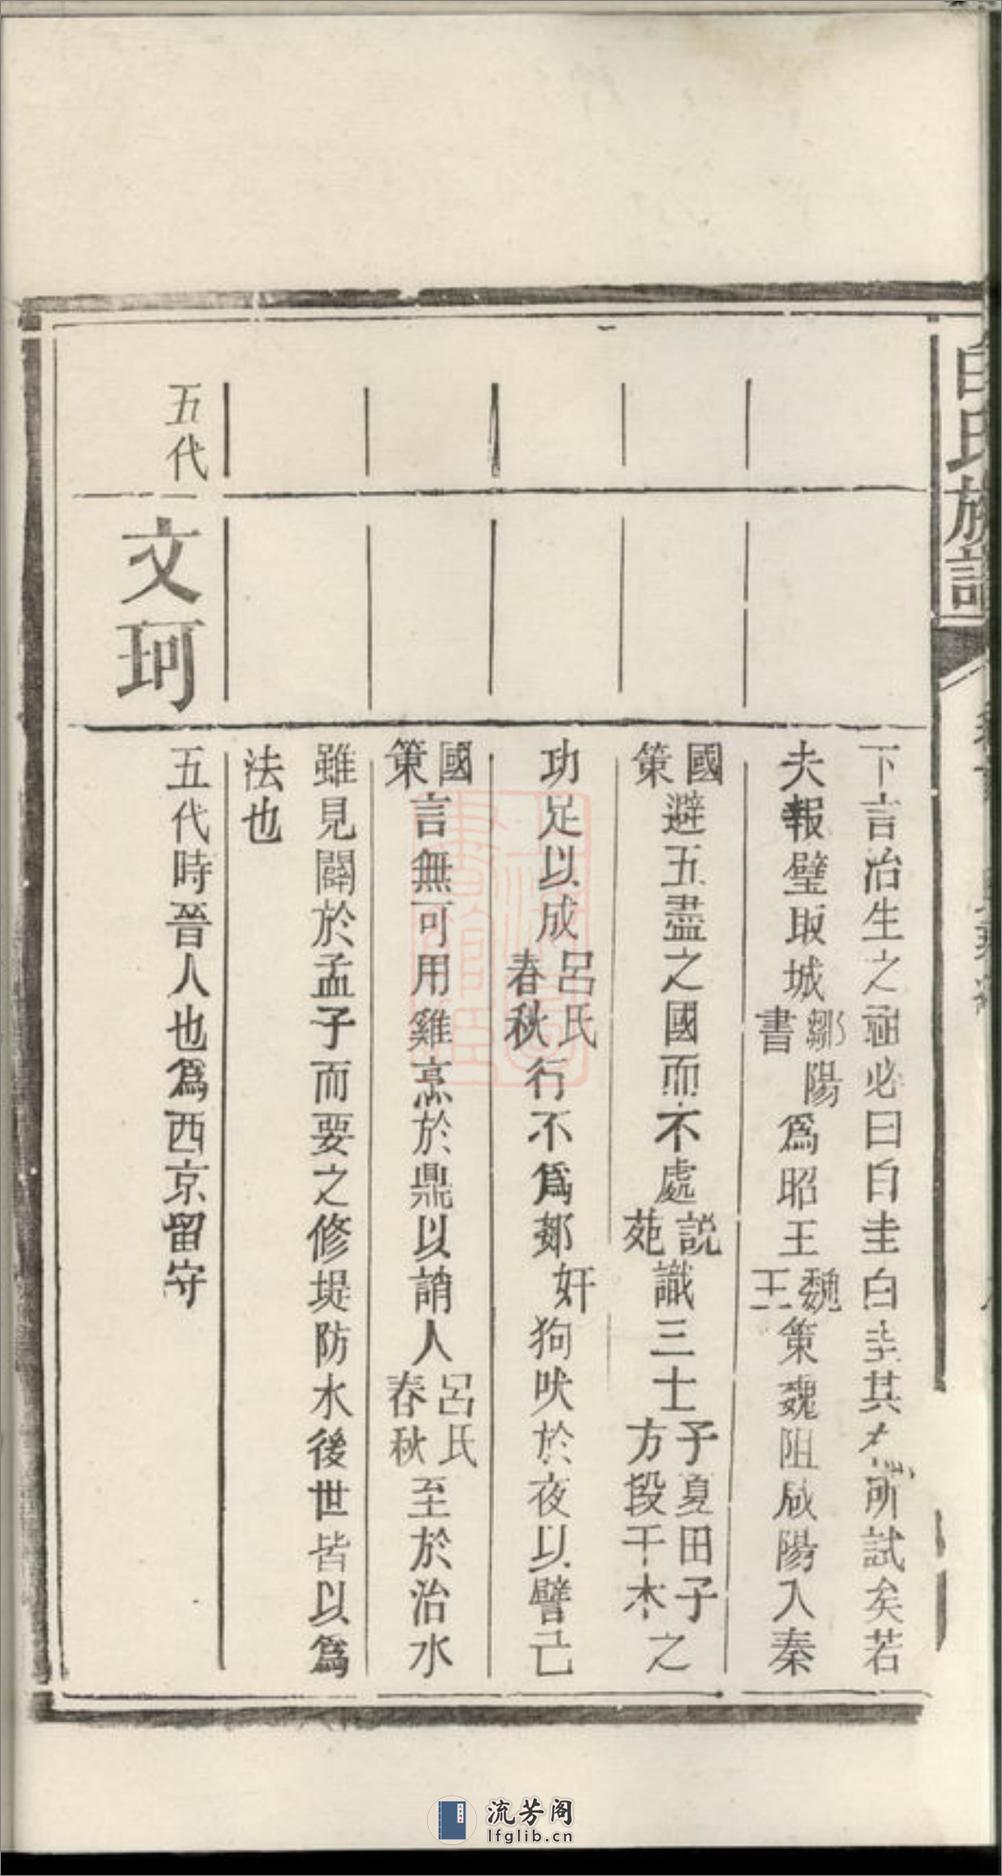 白氏族譜
下言治生之祖必曰白圭白圭其有所試矣若
夫報璧取城鄒陽書爲昭王魏王策魏阻咸陽入秦
國策避五盡之國而不處説苑識三士子夏田子方段干木之
功足以成呂氏春秋行不爲鄰奸狗吠於夜以譬己
國策言無可用雞烹於鼎以誚人呂氏春秋至於治水
雖見闢於孟子而要之修堤防水後世皆以爲
法也
五代
文珂
五代時晉人也爲西京留守
流芳阁
lfglib.cn